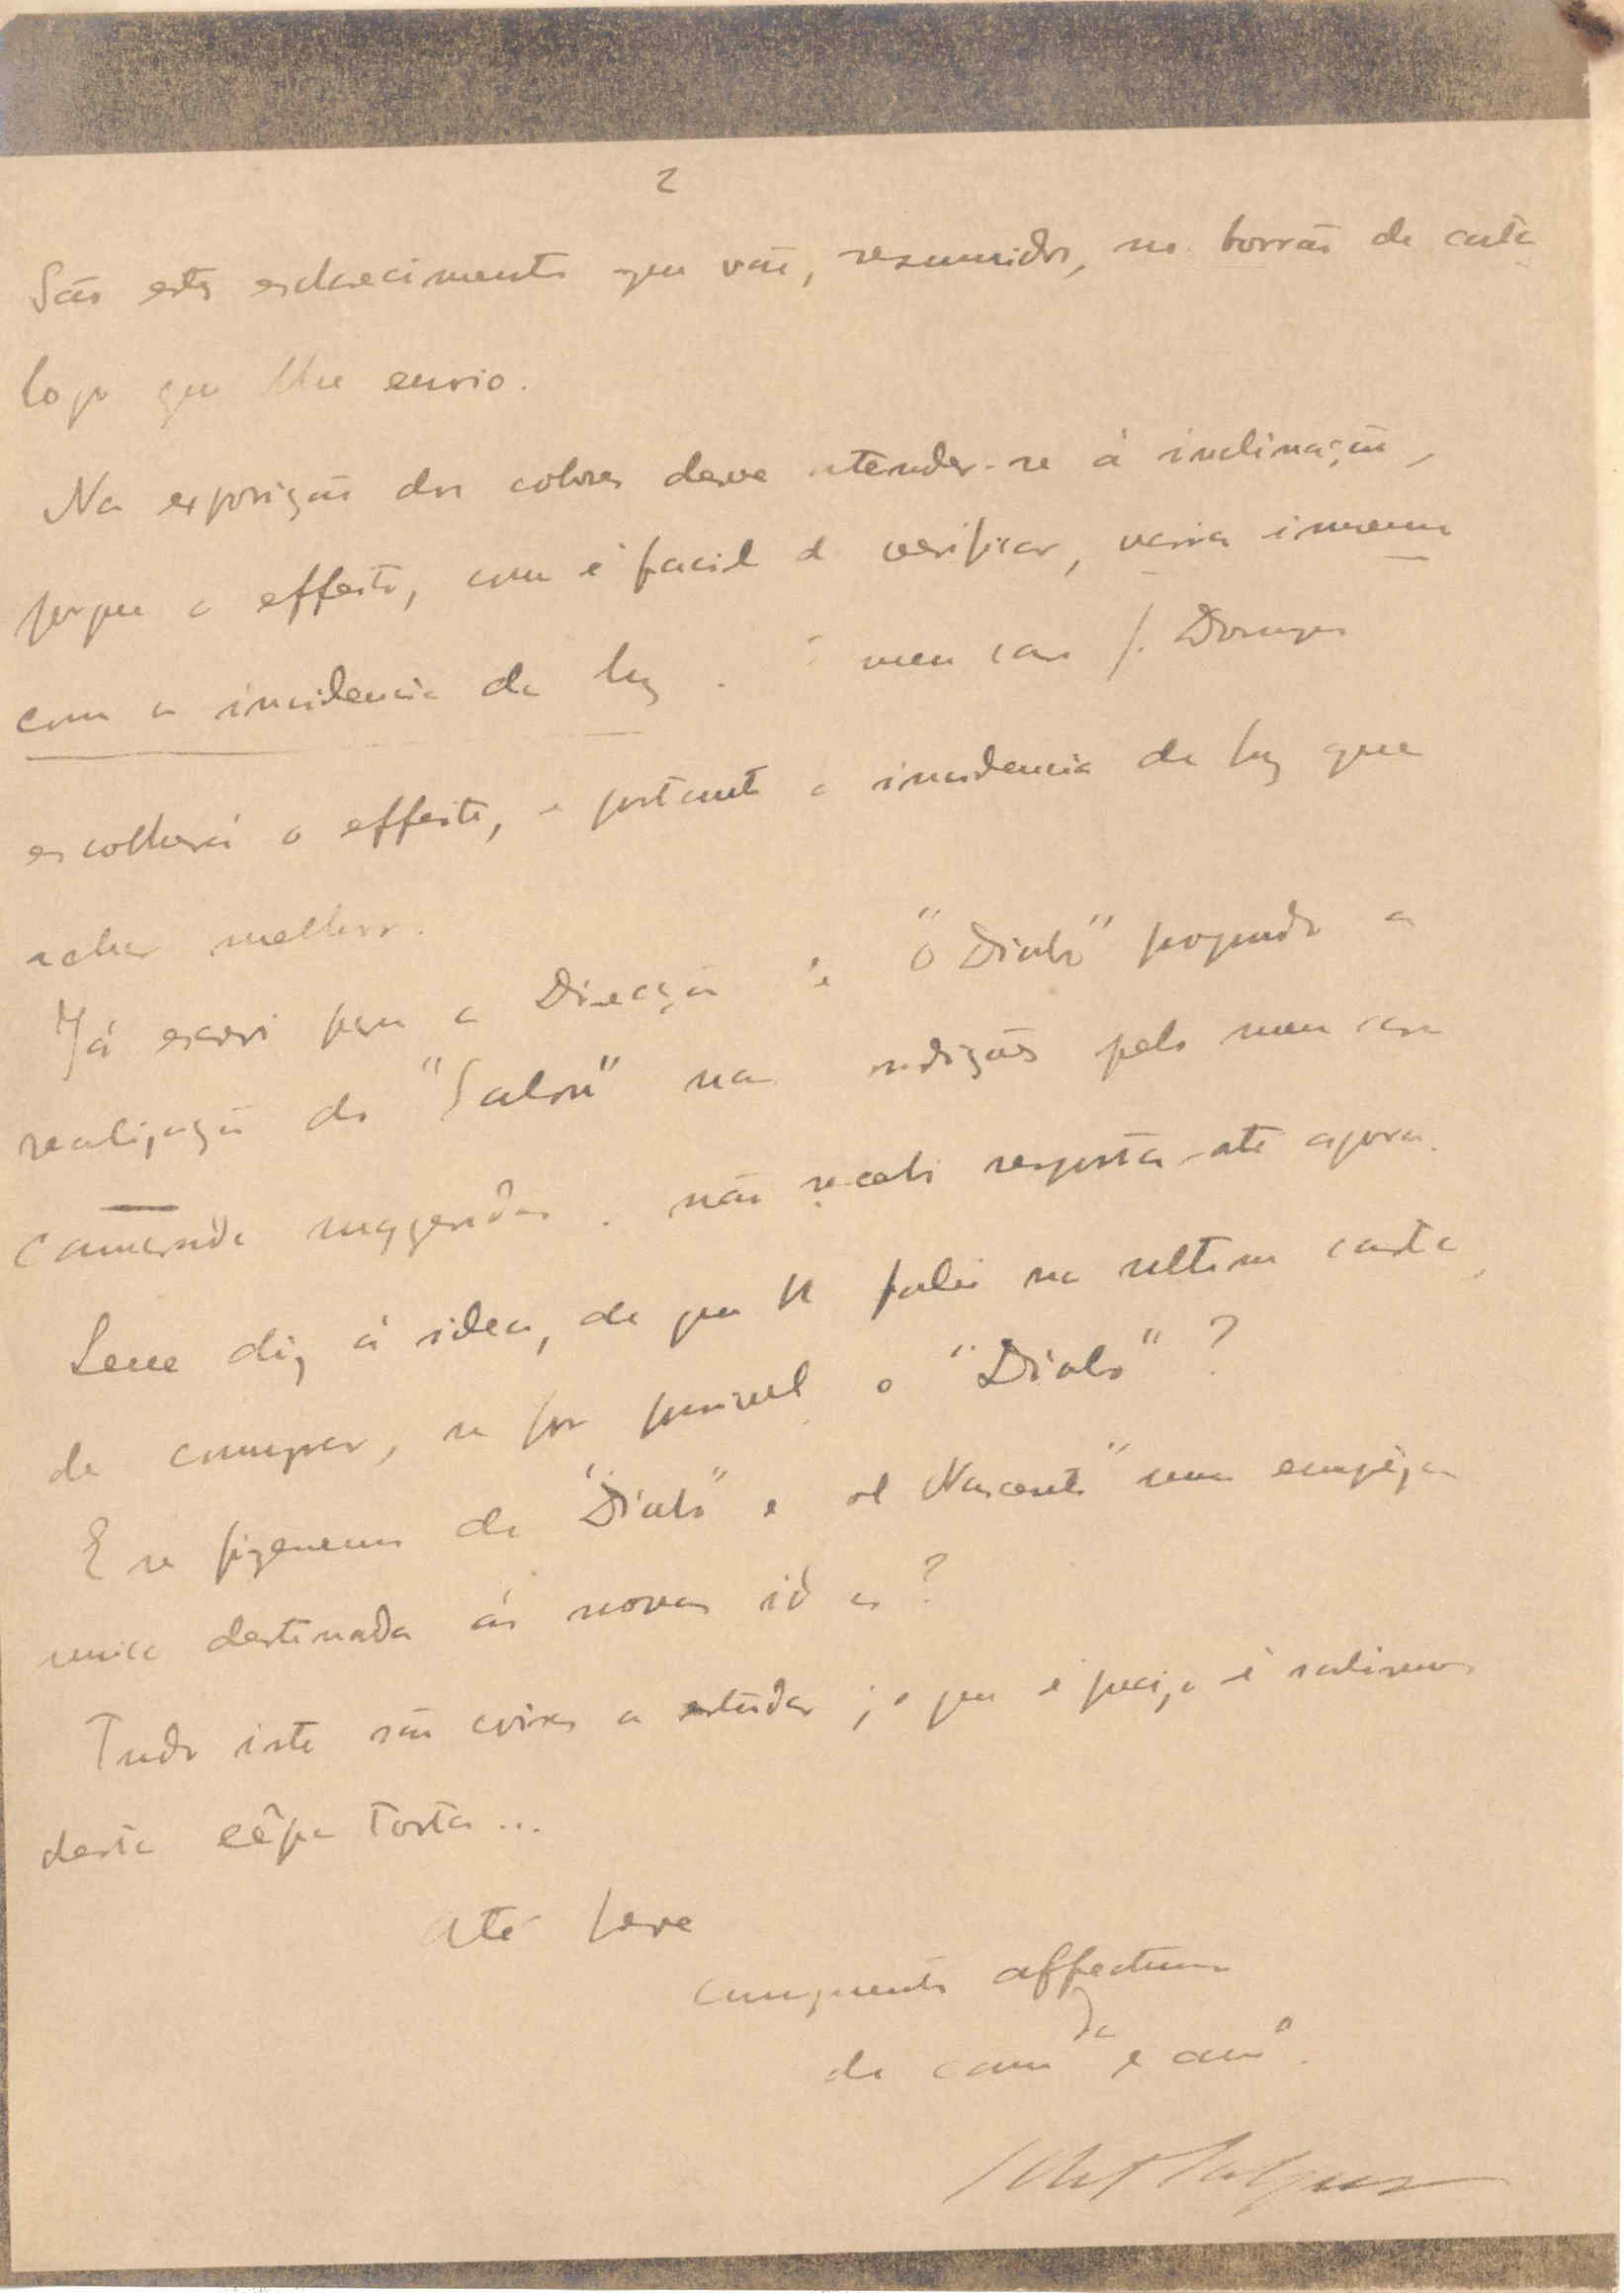 2
São estes esclarecimentos que vão, resumidos, no borrão de cata
logo que lhe envio.
Na exposição dos cobres deve atender-se á inclinação,
porque o effeito, como é facil de verificar, varia immenso
com a incidencia da luz. O meu caro J. Domingos
escolherá o effeito, e portanto a incidencia da luz que
achar melhor.
Já escrevi para a Direcção de "O Diabo" propondo a
realização do "Salon" nas condições pelo meu caro
camarada suggeridas. Não recebi resposta até agora.
Que diz á idea, de que lhe falei na ultima carta,
de comprar, se for possivel o "Diabo"?
E se fizessemos do "Diabo" e "Sol Nascente" uma empêza
unica destinada ás novas idéas?
Tudo isto são coisas a estudar; o que é preciso é sahirmos
desta cêpa torta...
Até breve
cumprimentos affectuosos
do cam.da e am.o